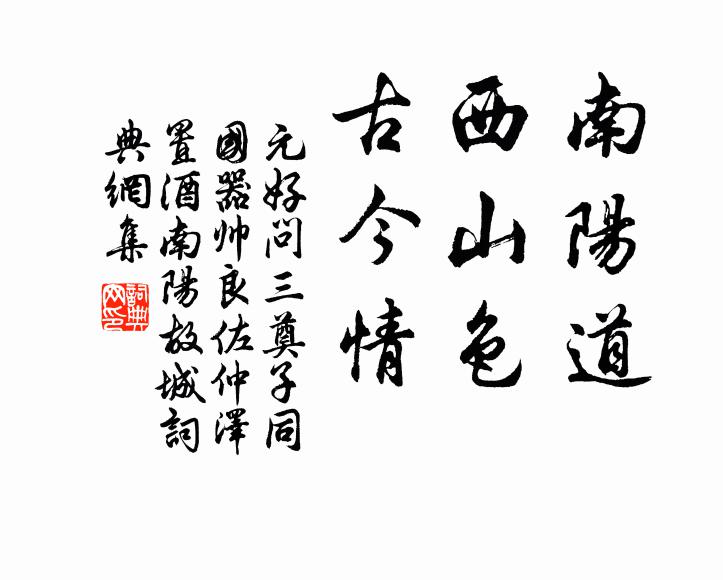 南陽道
西山色
古今情
元好問三奠子同
國器帅良佐仲澤
置酒南陽故城詞
典網集
詞典網印